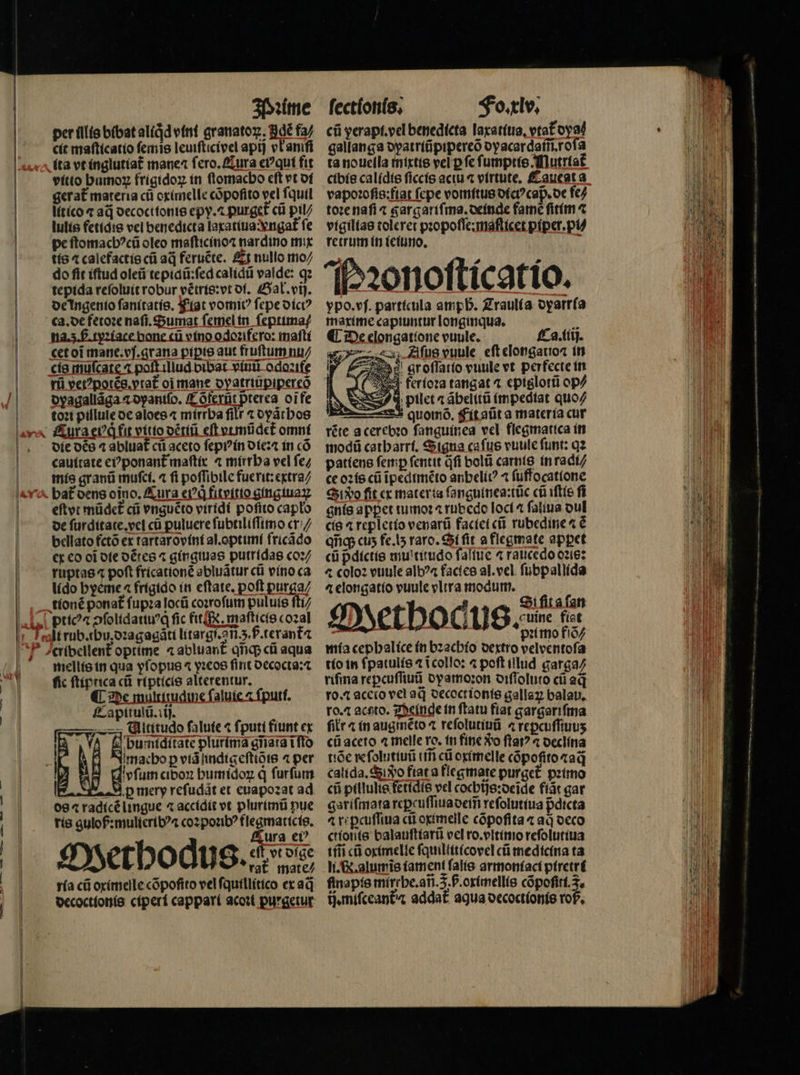 Prime
per illis bibat aliq̄d vini granatoꝝ. Idē fa⸗
cit masticatio semis leuistici vel apij vl' anisi
ita vt inglutiat͛ mane ⁊ sero. Cura ei⁹ qui fit
vitio humoꝝ frigidoꝝ in stomacho est vt di
gerat͛ materia cū oximelle cōposito vel squil
litico ⁊ aq̄ decoctionis epy. ⁊ purget͛ cū pil⸗
lulis fetidis vel benedicta laxatiua: vngat͛ se
pe stomach⁹ cū oleo masticino ⁊ nardino mix
tis ⁊ calefactis cū aq̄ feruēte. Et nullo mo⸗
do fit istud oleū tepidū: sed calidū valde: qꝛ
tepida resoluit robur vētris: vt dī. Gal. vij.
de ingenio sanitatis. Fiat vomit⁹ sepe dict⁹
ca. de fetore nasi. Sumat semel in septima⸗
na. ʒ. ß. tyriace bone cū vino odorifero: masti
cet oī mane. vſ. grana pipis aut frustum nu⸗
cis muscate ⁊ post illud bibat vinū odorife
rū vet⁹ potēs. vtat͛ oī mane dyatriūpipereō
dyagalāga ⁊ dyaniso. Cōferūt p̄terea oī se
tori pillule de aloes ⁊ mirrha sil'r ⁊ dyārhos
Cura ei⁹ q̄ fit vitio dētiū est vt mūdet͛ omni
die dēs ⁊ abluat͛ cū aceto sepi⁹ in die: ⁊ in cō
cauitate ei⁹ ponant͛ mastix ⁊ mirrha vel se⸗
mis granū musci. ⁊ si possibile fuerit: extra⸗
hat͛ dens oīno. Cura ei⁹ q̄ fit vitio gingiuaꝝ
est vt mūdet͛ cū vnguēto viridi posito cap'lo
de surditate. vel cū puluere subtilissimo cri⸗
bellato fctō ex tartaro vini al. optimi fricādo
ex eo oī die dētes ⁊ gingiuas putridas cor⸗
ruptas ⁊ post fricationē abluātur cū vino ca
lido hyeme ⁊ frigido in estate. post purga⸗
tionē ponat͛ supra locū corrosum puluis sti⸗
ptic⁹ ⁊ ↄsolidatiu⁹ q̄ sic fit ℞. masticis coral
li rub. thu. dragagāti litargi. añ. ʒ. ß. terant͛ ⁊
cribellent͛ optime ⁊ abluant͛ qñcꝫ cū aqua
mellis in qua ysopus ⁊ yreos sint decocta: ⁊
sic stiptica cū stipticis alterentur.
¶ De multitudine saliue ⁊ sputi.
Capitulū. ij.
Ultitudo saliue ⁊ sputi fiunt ex
humiditate plurima gñata ī sto
macho ꝑ viā indigestiōis ⁊ per
vsum ciboꝝ humidoꝝ q̄ sursum
ꝑ mery resudāt et euaporat ad
os ⁊ radicē lingue ⁊ accidit vt plurimū pue
ris gulosꝭ: mulierib⁹ ⁊ corporib⁹ flegmaticis.
Methodus. Cura ei⁹
est vt dige
rat͛ mate⸗
ria cū oximelle cōposito vel squillitico ex aq̄
decoctionis ciperi cappari acori purgetur
sectionis, Fo. xlv.
cū yerapi. vel benedicta laxatiua, vtat͛ dya⸗
gallanga dyatriūpipereō dyacardam̄. rosa
ta nouella mixtis vel ꝑ se sumptis. Nutriat͛
cibis calidis siccis actu ⁊ virtute. Caueat a
vaporosis: fiat sepe vomitus dict⁹ cap. de fe⸗
tore nasi ⁊ gargarisma. deinde famē sitim ⁊
vigilias toleret pro posse: masticet piper. pi⸗
retrum in ieiuno.
Pronosticatio.
ypo. vſ. particula amph. Traulia dyarria
maxime capiuntur longinqua.
¶ De elongatione vuule. Ca. iiij.
Asus vuule est elongatio ⁊ in
grossatio vuule vt perfecte in
feriora tangat ⁊ epiglotū op⸗
pilet ⁊ ābelitū impediat quo⸗
quomō. Fit aūt a materia cur
rēte a cerebro sanguinea vel flegmatica in
modū catharri. Signa casus vuule sunt: qꝛ
patiens semꝑ sentit q̄si bolū carnis in radi⸗
ce oris cū īpedimēto anhelit⁹ ⁊ suffocatione
Si ꝟo fit ex materia sanguinea: tūc cū istis si
gnis appet tumor ⁊ rubedo loci ⁊ saliua dul
cis ⁊ repletio venarū faciei cū rubedine ⁊ ē
qñcꝫ cuꝫ fe. lꝫ raro. Si fit a flegmate appet
cū p̄dictis multitudo saliue ⁊ raucedo oris:
⁊ color vuule alb⁹ ⁊ facies al. vel subpallida
⁊ elongatio vuule vltra modum.
Methodus. Si fit a san
guine fiat
primo flō⸗
mia cephalice in brachio dextro vel ventosa
tio in spatulis ⁊ ī collo: ⁊ post illud garga⸗
risma repcussiuū dyamoron dissoluto cū aq̄
ro. ⁊ aceto vel aq̄ decoctionis gallaꝝ balau.
ro. ⁊ aceto. Deinde in statu fiat gargarisma
sil'r ⁊ in augmēto ⁊ resolutiuū ⁊ repcussiuuꝫ
cū aceto ⁊ melle ro. in fine ꝟo stat⁹ ⁊ declina
tiōe resolutiuū tm̄ cū oximelle cōposito ⁊ aq̄
calida. Si ꝟo fiat a flegmate purget͛ primo
cū pillulis fetidis vel cochijs: deīde fiāt gar
garismata repcussiua deīn resolutiua p̄dicta
⁊ repcussiua cū oximelle cōposita ⁊ aq̄ deco
ctionis balaustiarū vel ro. vltimo resolutiua
tm̄ cū oximelle squillitico vel cū medicina ta
li. ℞. alumis iameni salis armoniaci piretri
sinapis mirrhe. añ. ℥. ß. oximellis cōpositi. ℥.
ij. misceant͛ ⁊ addat͛ aqua decoctionis ros.